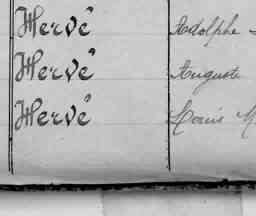 Hervé Adolphe
Hervé Auguste
Hervé Louis M